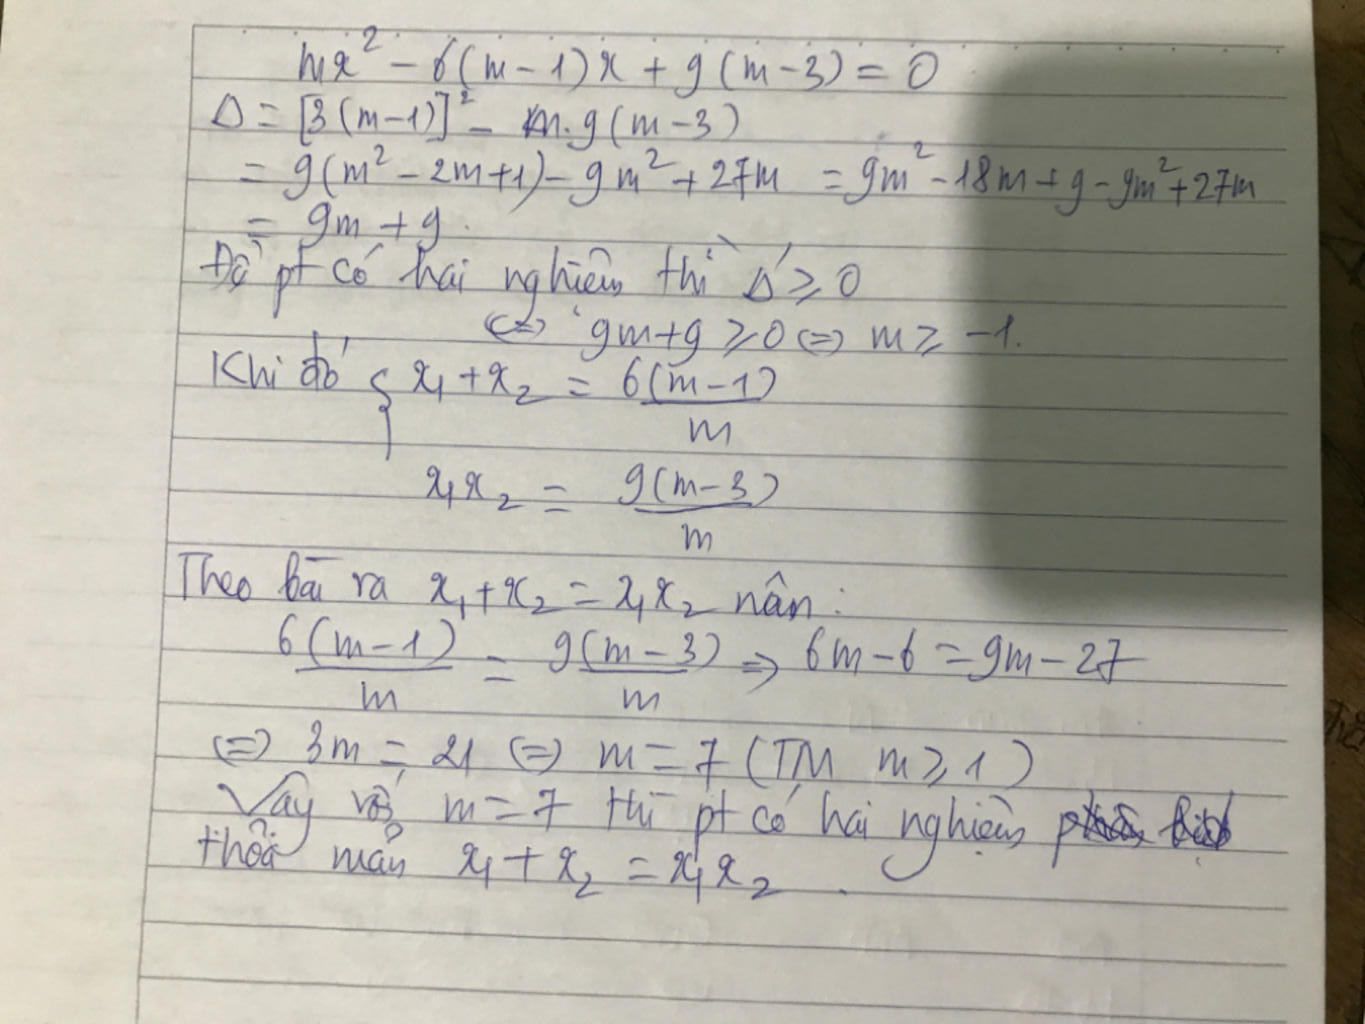 mx² - 6(m-1)x + 9(m-3) = 0
Δ = [3(m-1)]² - m.9(m-3)
= 9(m² - 2m+1) - 9m² + 27m = 9m² - 18m + 9 - 9m² + 27m
= 9m + 9.
Để pt có hai nghiệm thì Δ' ≥ 0
⇔ 9m+9 ≥ 0 ⇔ m ≥ -1.
Khi đó { x₁ + x₂ = 6(m-1)/m
x₁x₂ = 9(m-3)/m
Theo bài ra x₁ + x₂ = x₁x₂ nên :
6(m-1)/m = 9(m-3)/m ⇒ 6m - 6 = 9m - 27
⇔ 3m = 21 ⇔ m = 7 (TM m ≥ 1)
Vậy với m = 7 thì pt có hai nghiệm
thỏa mãn x₁ + x₂ = x₁x₂.